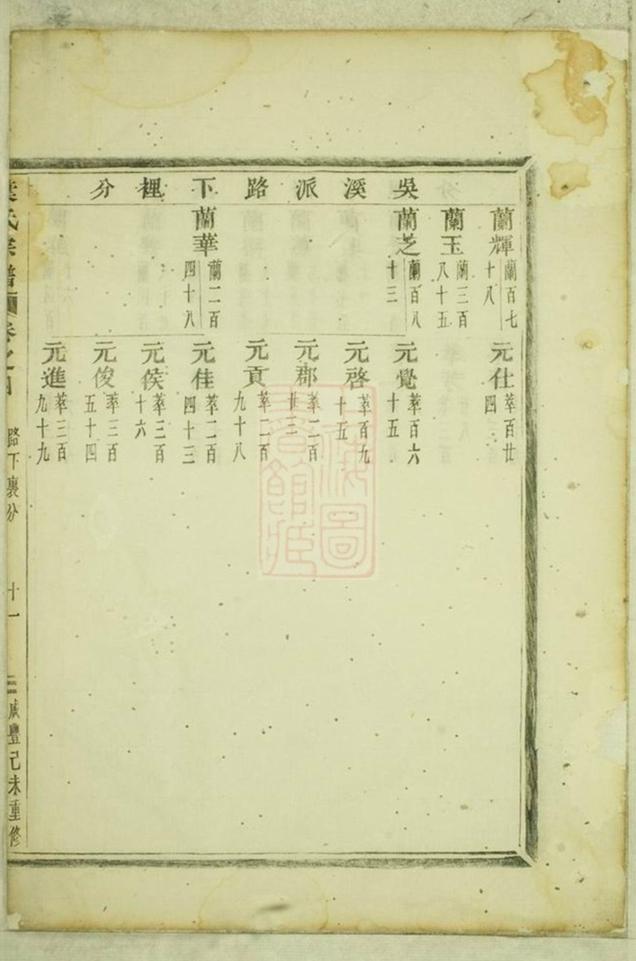 吳溪派路下裡分
蘭輝 蘭百七十八
蘭玉 蘭三百八十五
蘭芝 蘭百八十三
蘭華 蘭二百四十八
元仕 萃百廿四
元覺 萃百六十五
元啓 萃百九十五
元郡 萃二百廿三
元貢 萃二百九十八
元佳 萃二百四十三
元侯 萃三百十六
元俊 萃三百五十四
元進 萃三百九十九
氏宗譜 卷之四 路下裏分 十一 咸豐己未重修